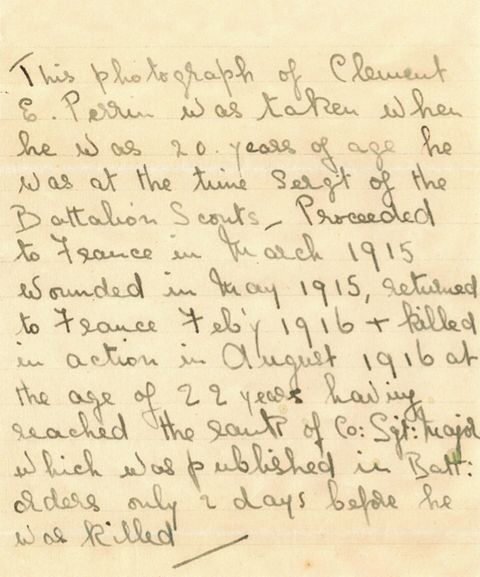 This photograph of Clement
E. Perrin was taken when
he was 20. years of age he
was at the time Sergt of the
Battalion Scouts_ Proceeded
to France in March 1915
wounded in May 1915, returned
to France Feb'y 1916 + killed
in action in August 1916 at
the age of 22 years having
reached the rank of Co: Sgt: Major
which was published in Batt:
orders only 2 days before he
was killed